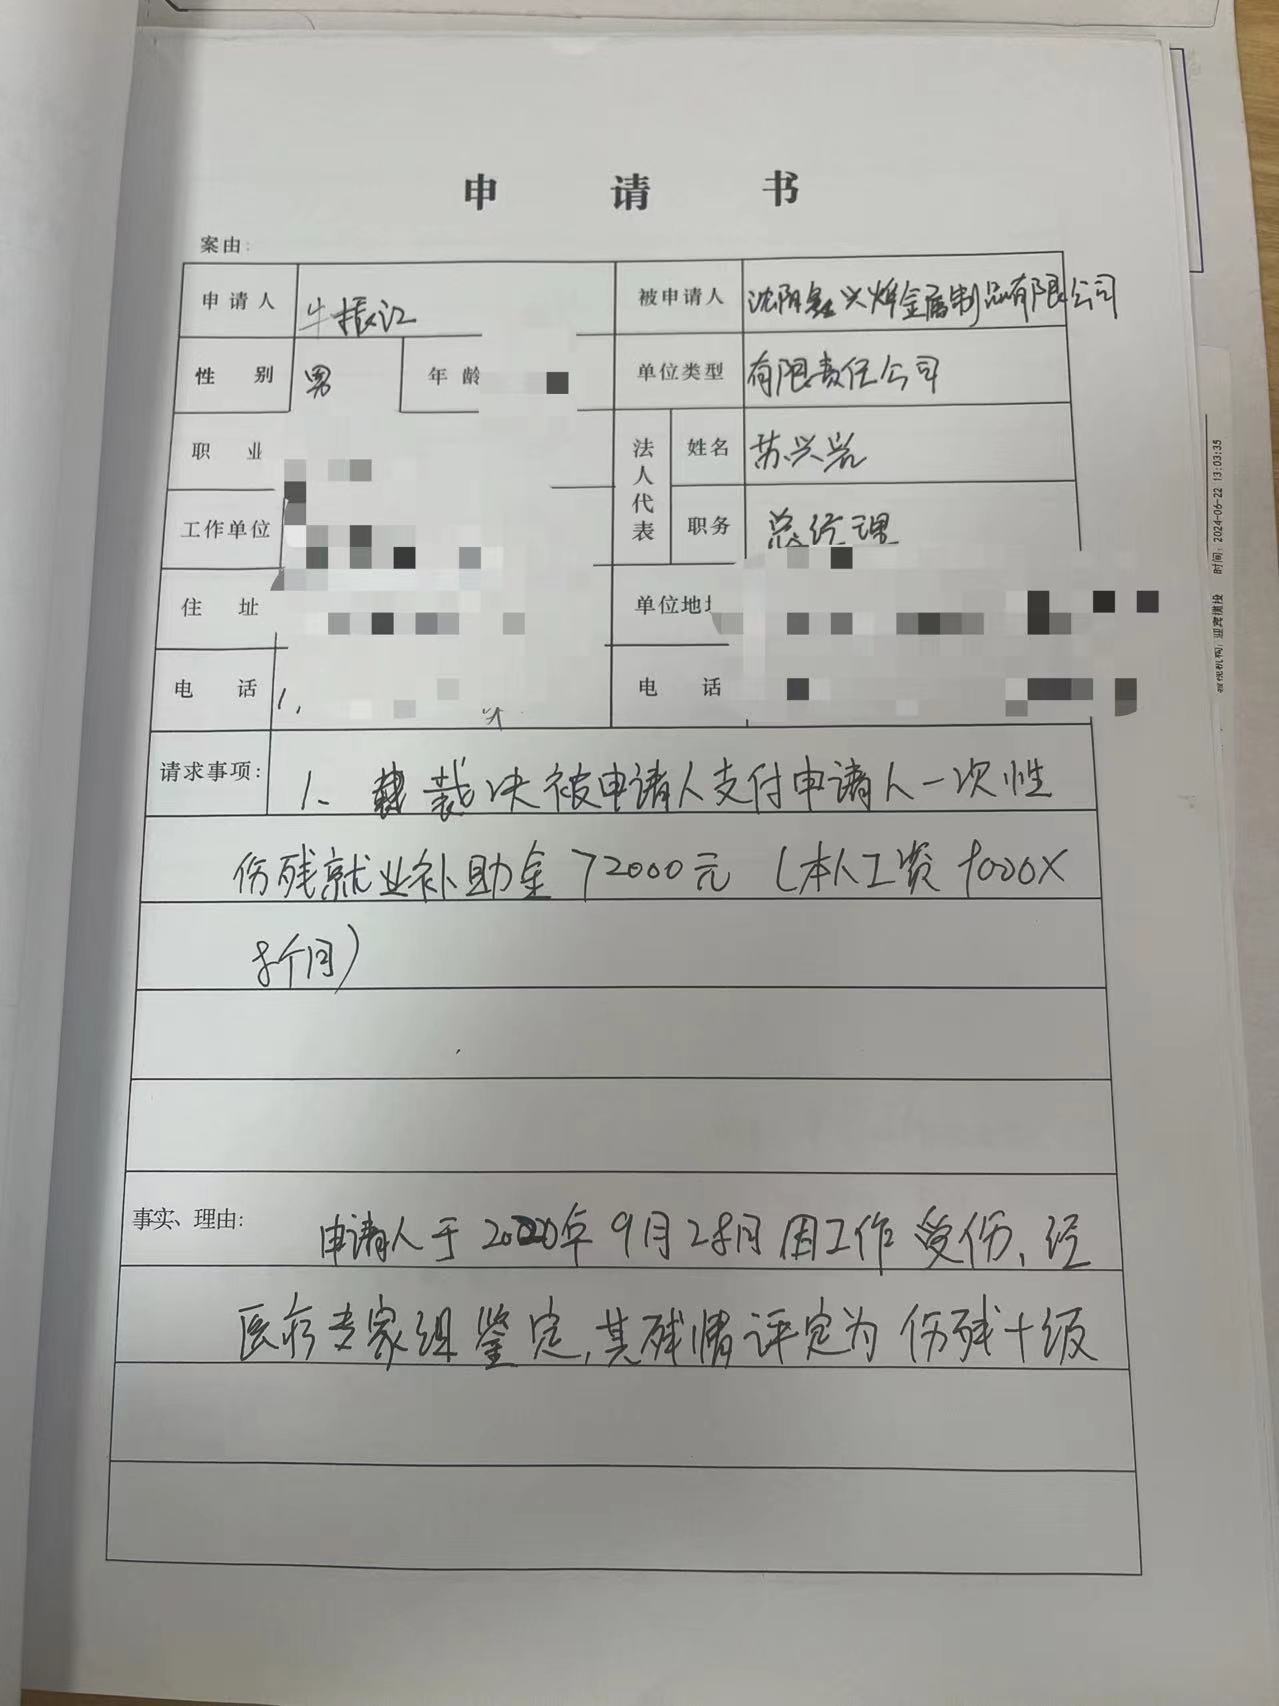 申请书
案由:
申请人 牛振江 被申请人 沈阳鑫兴烨金属制品有限公司
性别 男 年龄 单位类型 有限责任公司
职业 法人代表 姓名 苏兴岩
工作单位 职务 总经理
住址 单位地址
电话 1. 电话
请求事项: 1、裁决被申请人支付申请人一次性
伤残就业补助金72000元(本人工资9000×
8个月)
事实、理由: 申请人于2020年9月28月因工作受伤、经
医疗专家组鉴定,其残情评定为伤残十级
时间: 2024-06-22 13:03:35